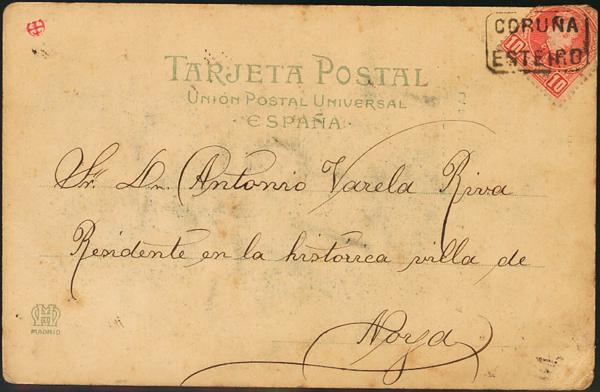 CORUÑA
ESTEIRO
10 10
TARJETA POSTAL
UNIÓN POSTAL UNIVERSAL
· ESPAÑA ·
Sr. Dn. Antonio Varela Riva
Residente en la histórica villa de
Noya
MADRID